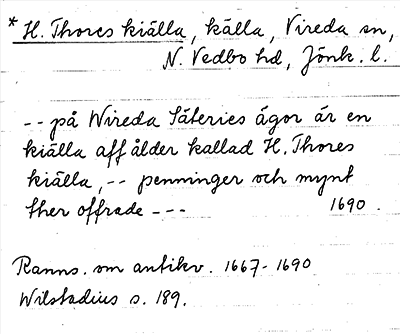 * H. Thores kiälla, källa, Vireda sn,
N. Vedbo hd, Jönk. l.
-- på Wireda Säteries ägor är en
kiälla aff ålder kallad H. Thores
kiälla, -- penninger och mynt
ther offrade --- 1690.
Ranns. om antikv. 1667-1690
Wilstadius s. 189.